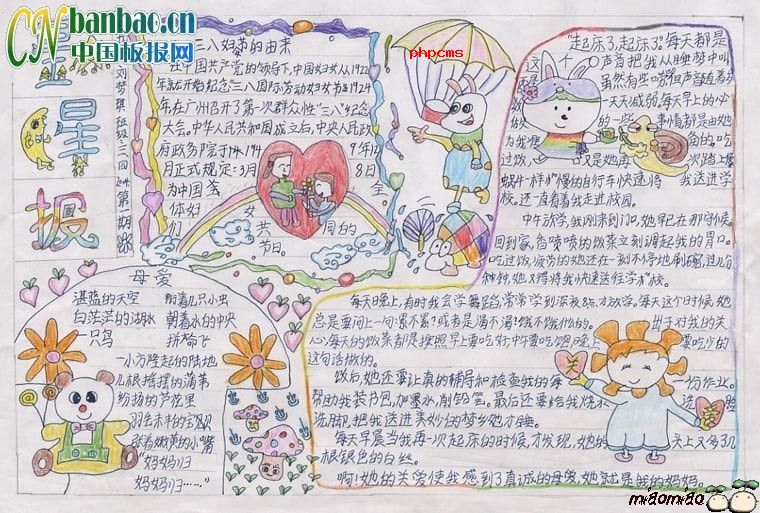 CN banbao.cn
中国板报网
星
星
报
三八妇女节的由来
在中国共产党的领导下,中国妇女从1922
年就开始纪念"三八国际劳动妇女节"1924
年在广州召开了第一次群众性"三八"纪念
大会。中华人民共和国成立后,中央人民政
府政务院于1949年12
月正式规定:3月8日
为中国全
体妇女共同的
节日。
phpcms
母爱
湛蓝的天空
白茫茫的湖水
一只鸟
附着几只小虫
朝着水的中央
拼命飞
一小方隆起的陆地
几根摇摆的蒲苇
纷扬的芦花里
张着嫩黄的小嘴
"妈妈归
妈妈归……"
"起床了,起床了。"每天都是
这个声音把我从睡梦中叫
一天天减弱,每天早上的
蜗牛一样慢的自行车快速将我送进学
校。还一直看着我走进校园。
中午放学,我刚来到门口,她早已在那等候。
回到家,香喷喷的饭菜立刻调起我的胃口。
吃过饭,疲劳的她还在一刻不停地刷碗,过几分
钟,她又得将我快速送往学校。
每天晚上,有时我会学舞蹈,常常学到深夜8点才放学。每天这个时候,她
总是要问上一句:累不累?或者是渴不渴?饿不饿什么的。出于对我的关
心,每天的饭菜都是按照早上要吃好,中午要吃饱,晚上要吃少的
这句话做的。
饭后,她还要认真的辅导和检查我的每一份作业。
帮助我装书包,加墨水,削铅笔。最后还要给我烧水洗脸
洗脚,把我送进美妙的梦乡她才睡。
每天早晨当我再一次起床的时候,才发现,她的头上又多了几
根银色的白丝。
啊!她的关爱使我感到了真诚的母爱,她就是我的妈妈。
关
爱
miaomiao